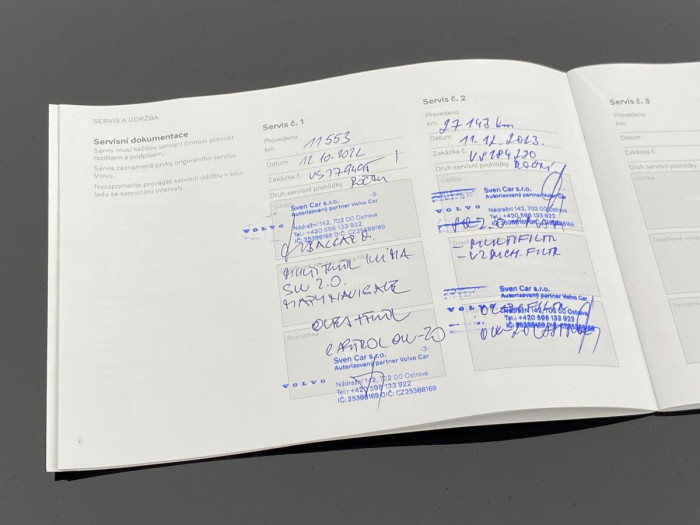 SERVIS A ÚDRŽBA
Servisní dokumentace
Servis musí každou servisní činnost potvrdit
razítkem a podpisem.
Servis zaznamená prvky originálního servisu
Volvo.
Nezapomeňte provádět servisní údržbu v sou-
ladu se servisními intervaly.
6
Servis č. 1
Provedeno
km 11553
Datum 12.10.2022
Zakázka č.
Druh servisní prohlídky ROČNÍ
Sven Car s.r.o. -3-
Autorizovaný partner Volvo Car
VOLVO Nádražní 142, 702 00 Ostrava
Tel.: +420 596 133 922
IČ: 25388169 DIČ: CZ25388169
MULTI FILTR KLIMA
SW 2.0.
MAPY NAVIGACE
OLEJ + FILTR
CASTROL OW-20
Poznámka
Sven Car s.r.o. -3-
Autorizovaný partner Volvo Car
VOLVO Nádražní 142, 702 00 Ostrava
Tel.: +420 596 133 922
IČ: 25388169 DIČ: CZ25388169
Servis č. 2
Provedeno
km 27 143 km
Datum 11.12.2023.
Zakázka č. VS184220
Druh servisní prohlídky ROČNÍ
Údržba
Sven Car s.r.o. -3-
Autorizovaný partner Volvo Car
VOLVO Nádražní 142, 702 00 Ostrava
Tel.: +420 596 133 922
- MULTIFILTR
- VZDUCH. FILTR
Sven Car s.r.o. -3-
Autorizovaný partner Volvo Car
VOLVO Nádražní 142, 702 00 Ostrava
Tel.: +420 596 133 922
Servis č. 3
Provedeno
km
Datum
Zakázka č.
Druh servisní
Údržba